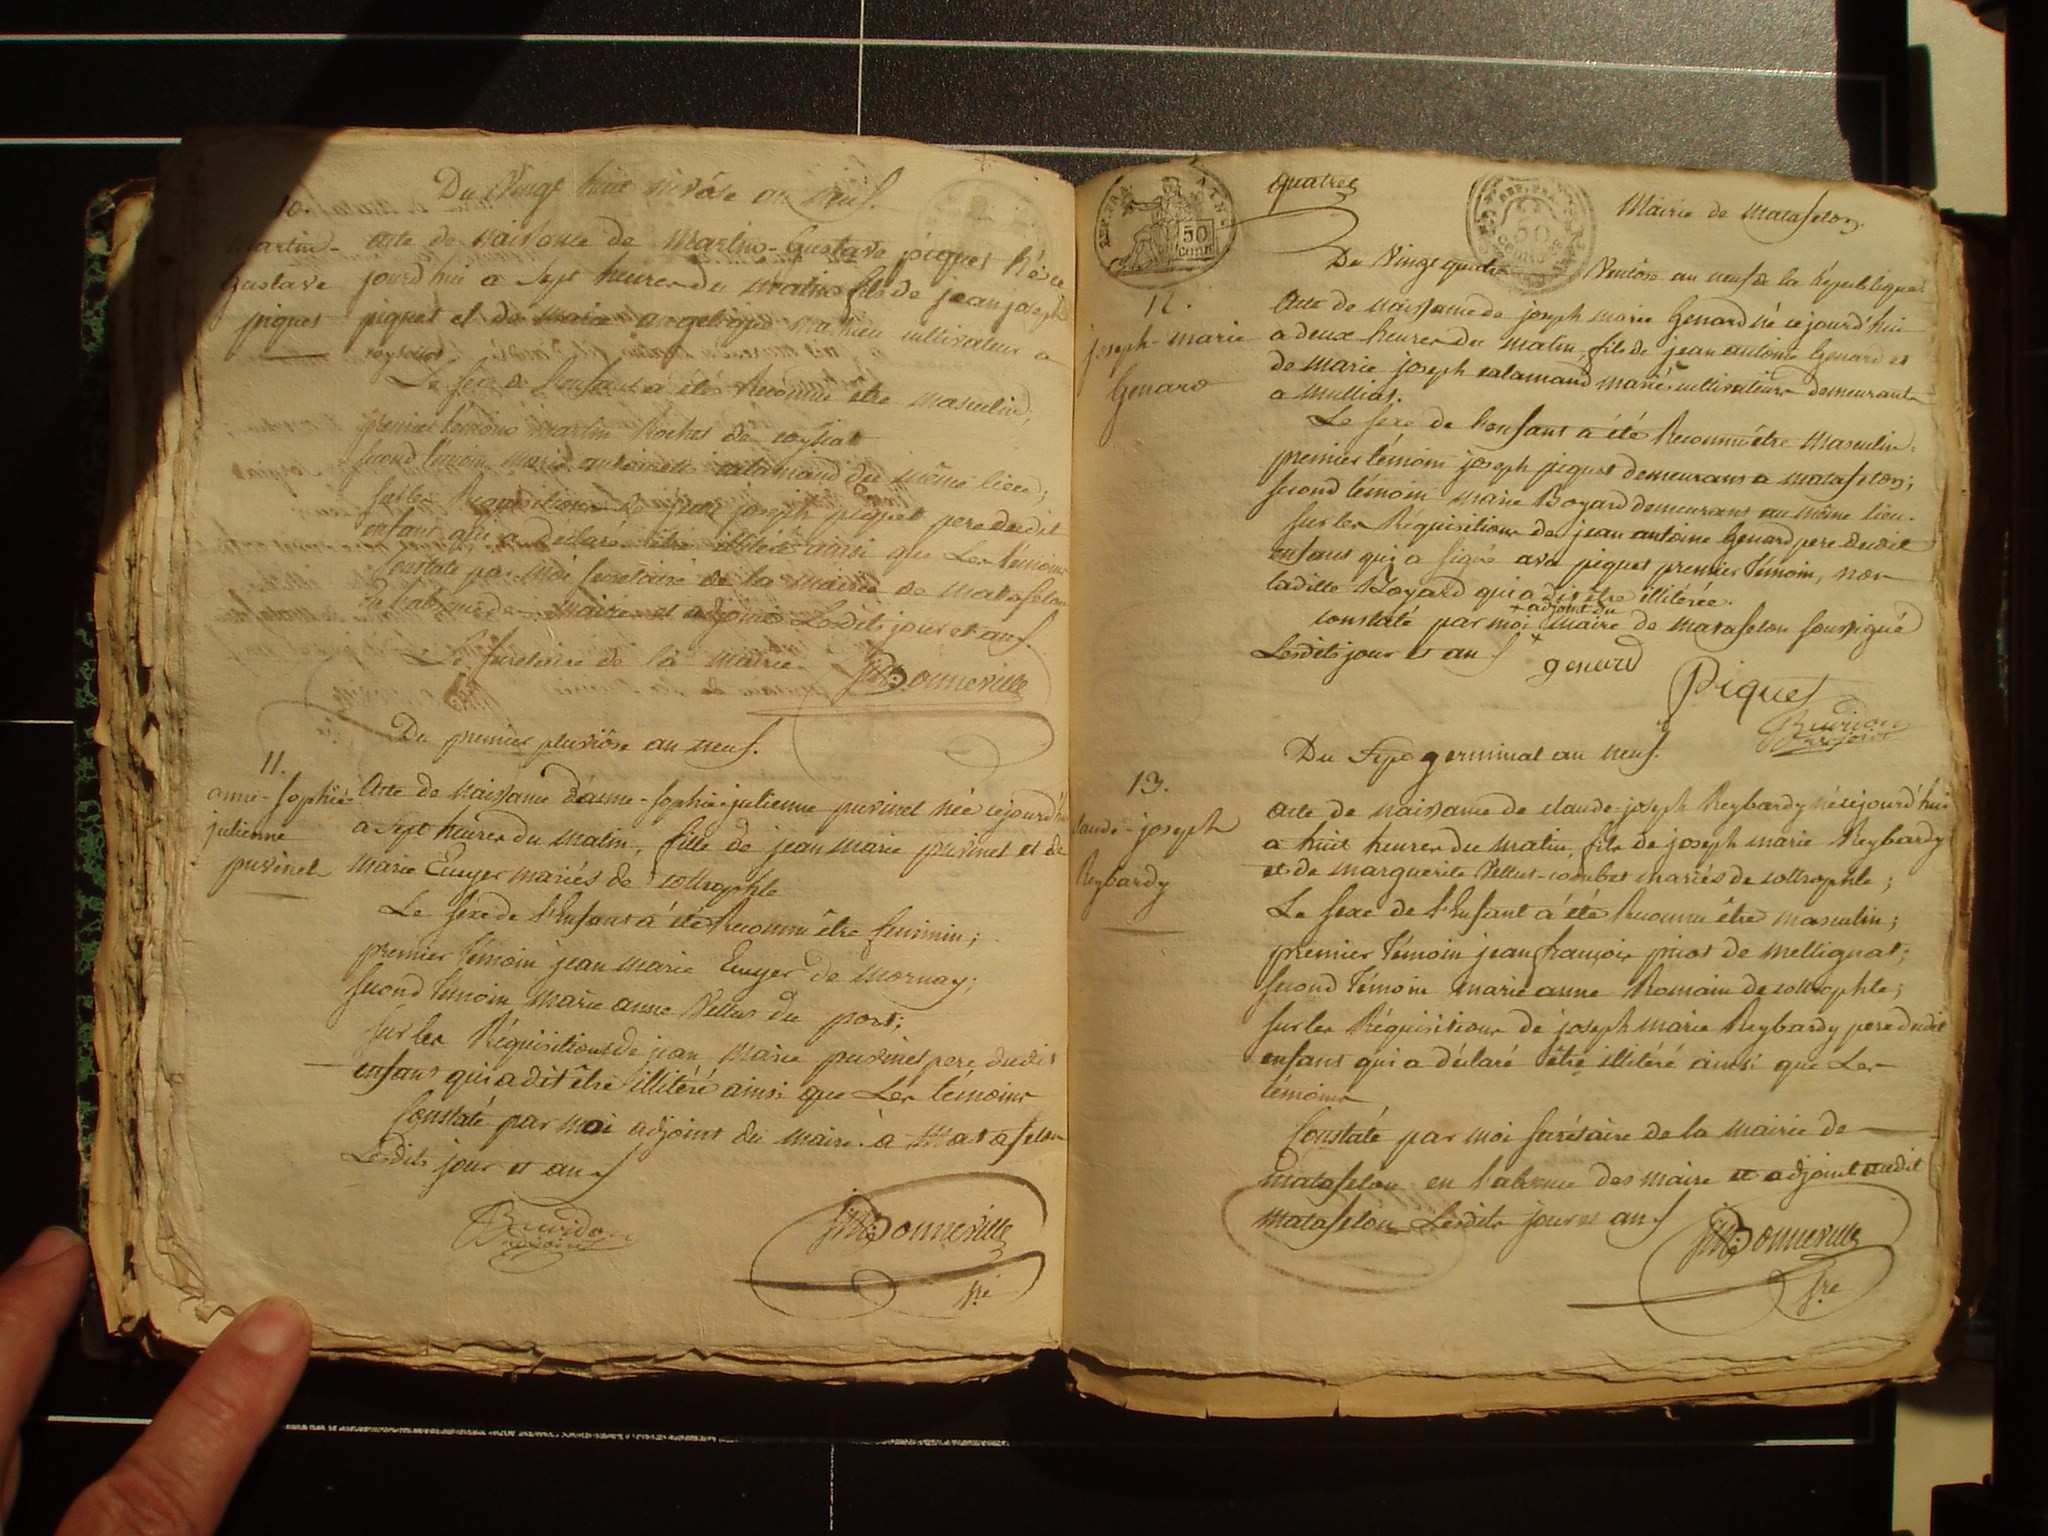 Du Vingt huit nivôse an neuf.
10.
martin-
Gustave
piquet
acte de naissance de Martin-Gustave piquet Né ce
jourd'hui a sept heures du matin fils de jean joseph
piquet et de marie angelique mathieu cultivateur a
coyselet
Le sexe de l'enfant a été Reconnu être masculin;
premier témoin martin Rochet de coysiat
second témoin marie antoinette calamand du même lieu;
sur les Requisitions de jean joseph piquet pere dudit
enfant qui a declaré être illitéré ainsi que Les témoins
Constaté par moi secretaire de la mairie de Matafelon
en l'absence des maire et adjoint Lesdits jour et an
Le secretaire de la mairie
Bonneville
Du premier pluviôse an neuf.
11.
anne-sophie
julienne
puvinel
Acte de Naissance d'anne-sophie-julienne puvinel née cejourd'hui
a sept heures du matin, fille de jean marie puvinel et de
marie Euyer mariés de cottrophle
Le sexe de l'Enfant a été Reconnu être feminin;
premier Témoin jean marie Euyer de Mornay;
second témoin Marie anne Vellut du port;
sur les Réquisitions de jean Marie puvinel pere dudit
enfant qui a dit être illitéré ainsi que Les témoins
Constaté par moi adjoint du maire à Matafelon
Lesdits jour et an
Buvidon
adjoint
Bonneville
sre
REP. FRA.
50
CENT.
quatre
Mairie de Matafelon.
Du Vingt quatre Ventôse an neuf de la République
12.
joseph-marie
Genard
Acte de naissance de joseph marie Genard né cejourd'hui
a deux heures du matin, fils de jean antoine Genard et
de marie joseph calamand mariés cultivateurs demeurants
a mulliat.
Le sexe de l'enfant a été Reconnu être Masculin.
premier témoin joseph piquet demeurant a Matafelon;
second témoin marie Boyard demeurant au même lieu.
sur les Réquisitions de jean antoine Genard pere dudit
enfant qui a signé avec piquet premier témoin, non
ladite Boyard qui a dit être illitérée.
+ adjoint du
constaté par moi + maire de matafelon soussigné
Lesdits jour et an
genard
Piquet
Buvidon
adjoint
Du Sept germinal an neuf.
13.
laude-joseph
Reybardy
acte de naissance de claude-joseph Reybardy né cejourd'hui
a huit heures du matin, fils de joseph marie Reybardy
et de marguerite Vellut-combet mariés de cottrophle;
Le sexe de l'Enfant a été Reconnu être masculin;
premier Témoin jean françois priot de mellignat;
second Témoin marie anne Romain de cottrophle;
sur les Réquisitions de joseph marie Reybardy pere dudit
enfant qui a déclaré être illitéré ainsi que Les
témoins
Constaté par moi secrétaire de la mairie de
matafelon en l'absence des maire et adjoint audit
matafelon Lesdits jour et an
Bonneville
sre